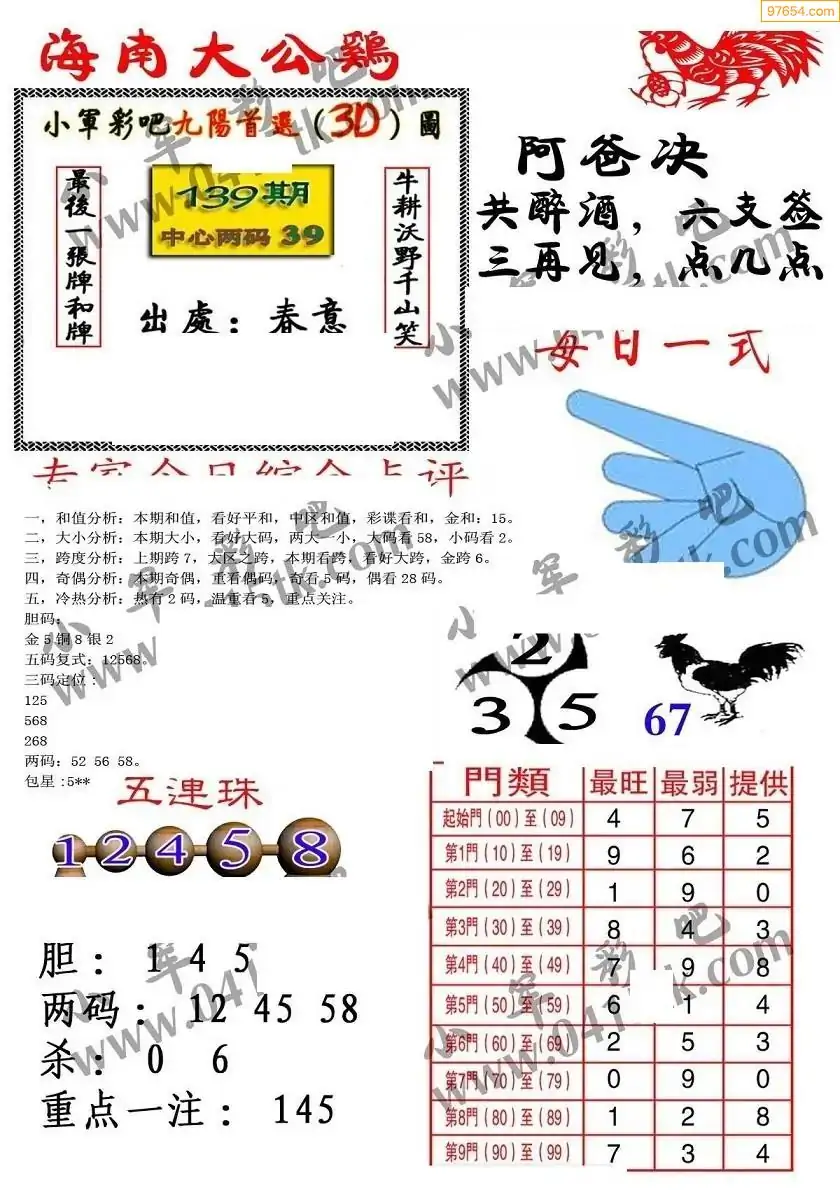 97654.com
海南大公鷄
小軍彩吧九陽首選（3D）圖
最後一張牌和牌
139期
中心两码 39
出處：春意
牛耕沃野千山笑
阿爸决
共醉酒，六支签
三再见，点几点
每日一式
专家今日综合点评
一，和值分析：本期和值，看好平和，中区和值，彩谍看和，金和：15。
二，大小分析：本期大小，看好大码，两大一小，大码看58，小码看2。
三，跨度分析：上期跨7，大区之跨，本期看跨，看好大跨，金跨6。
四，奇偶分析：本期奇偶，重看偶码，奇看5码，偶看28码。
五，冷热分析：热有2码，温重看5，重点关注。
胆码：
金5铜8银2
五码复式：12568。
三码定位：
125
568
268
两码：52 56 58。
包星:5**
2
3 5
67
五連珠
1 2 4 5 8
胆： 1 4 5
两码： 12 45 58
杀： 0 6
重点一注： 145
門類 最旺 最弱 提供
起始門（00）至（09） 4 7 5
第1門（10）至（19） 9 6 2
第2門（20）至（29） 1 9 0
第3門（30）至（39） 8 4 3
第4門（40）至（49） 7 9 8
第5門（50）至（59） 6 1 4
第6門（60）至（69） 2 5 3
第7門（70）至（79） 0 9 0
第8門（80）至（89） 1 2 8
第9門（90）至（99） 7 3 4
小军彩吧